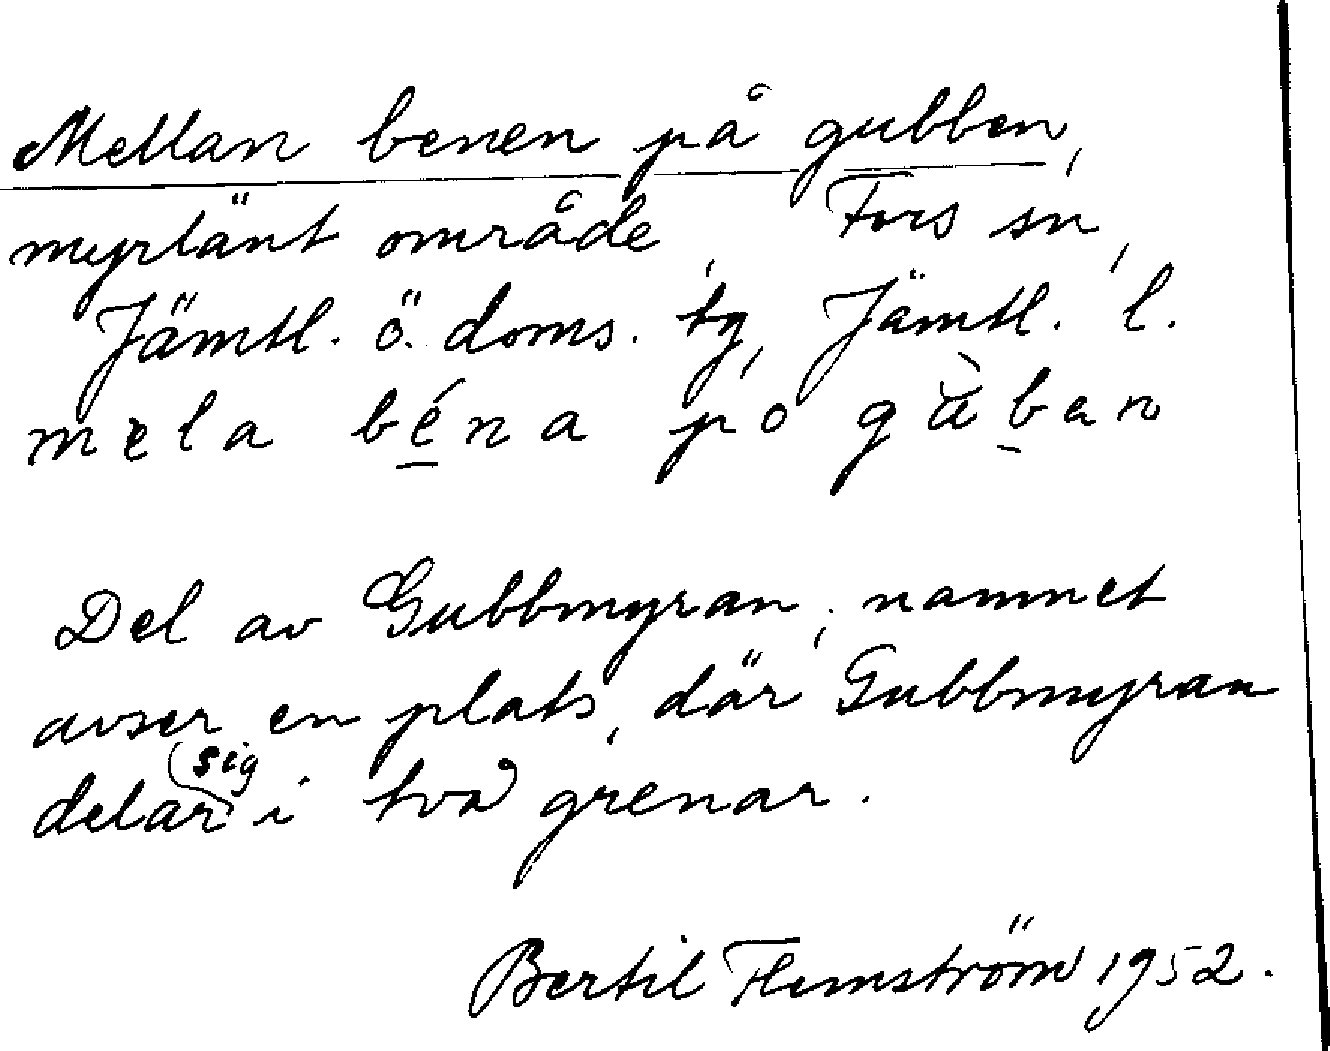 Mellan benen på gubben,
myrlänt område, Fors sn,
Jämtl. ö. doms. tg, Jämtl. l.
mela béna po gàban
Del av Gubbmyran; namnet
avser en plats, där Gubbmyran
delar sig i två grenar.
Bertil Flemström 1952.